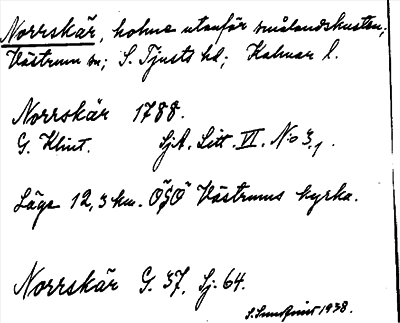 Norrskär, holme utanför smålandskusten;
Västrum sn; S. Tjusts hd; Kalmar l.
Norrskär 1788.
G. Klint. SjA. Litt. VI. No 3,1.
Läge 12,3 km. OSO Västrums kyrka.
Norrskär G. 37, Sj. 64.
1938.